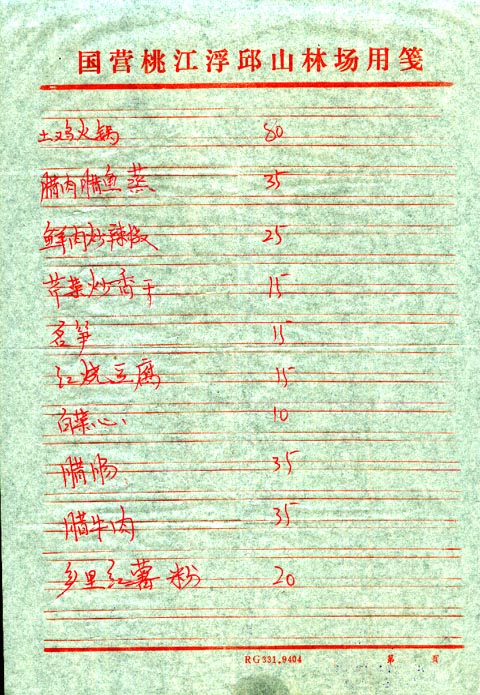 国营桃江浮邱山林场用笺
土鸡火锅 80
腊肉腊鱼蒸 35
鲜肉炒辣椒 25
芹菜炒香干 15
茗笋 15
红烧豆腐 15
白菜心 10
腊肠 35
腊牛肉 35
乡里红薯粉 20
RG331.9404 第 页